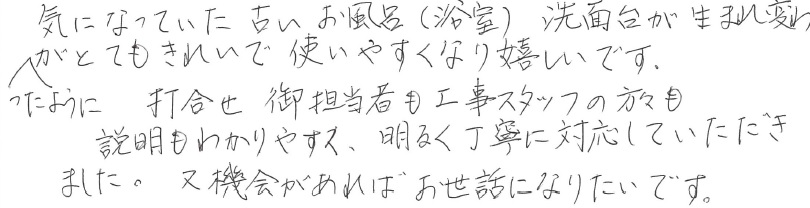 気になっていた古いお風呂(浴室)洗面台が生まれ変わ
がとてもきれいで使いやすくなり嬉しいです。
ったように 打合せ 御担当者も工事スタッフの方々も
説明もわかりやすく、明るく丁寧に対応していただき
ました。又機会があればお世話になりたいです。